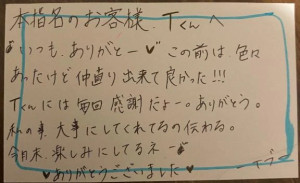 本指名のお客様、Tくんへ
いつも、ありがとー♥ この前は、色々
あったけど仲直り出来て良かった!!!
Tくんには毎回感謝だよー。ありがとう。
私の事、大事にしてくれてるの伝わる。
今月末、楽しみにしてるネー
♥ありがとうございました♥